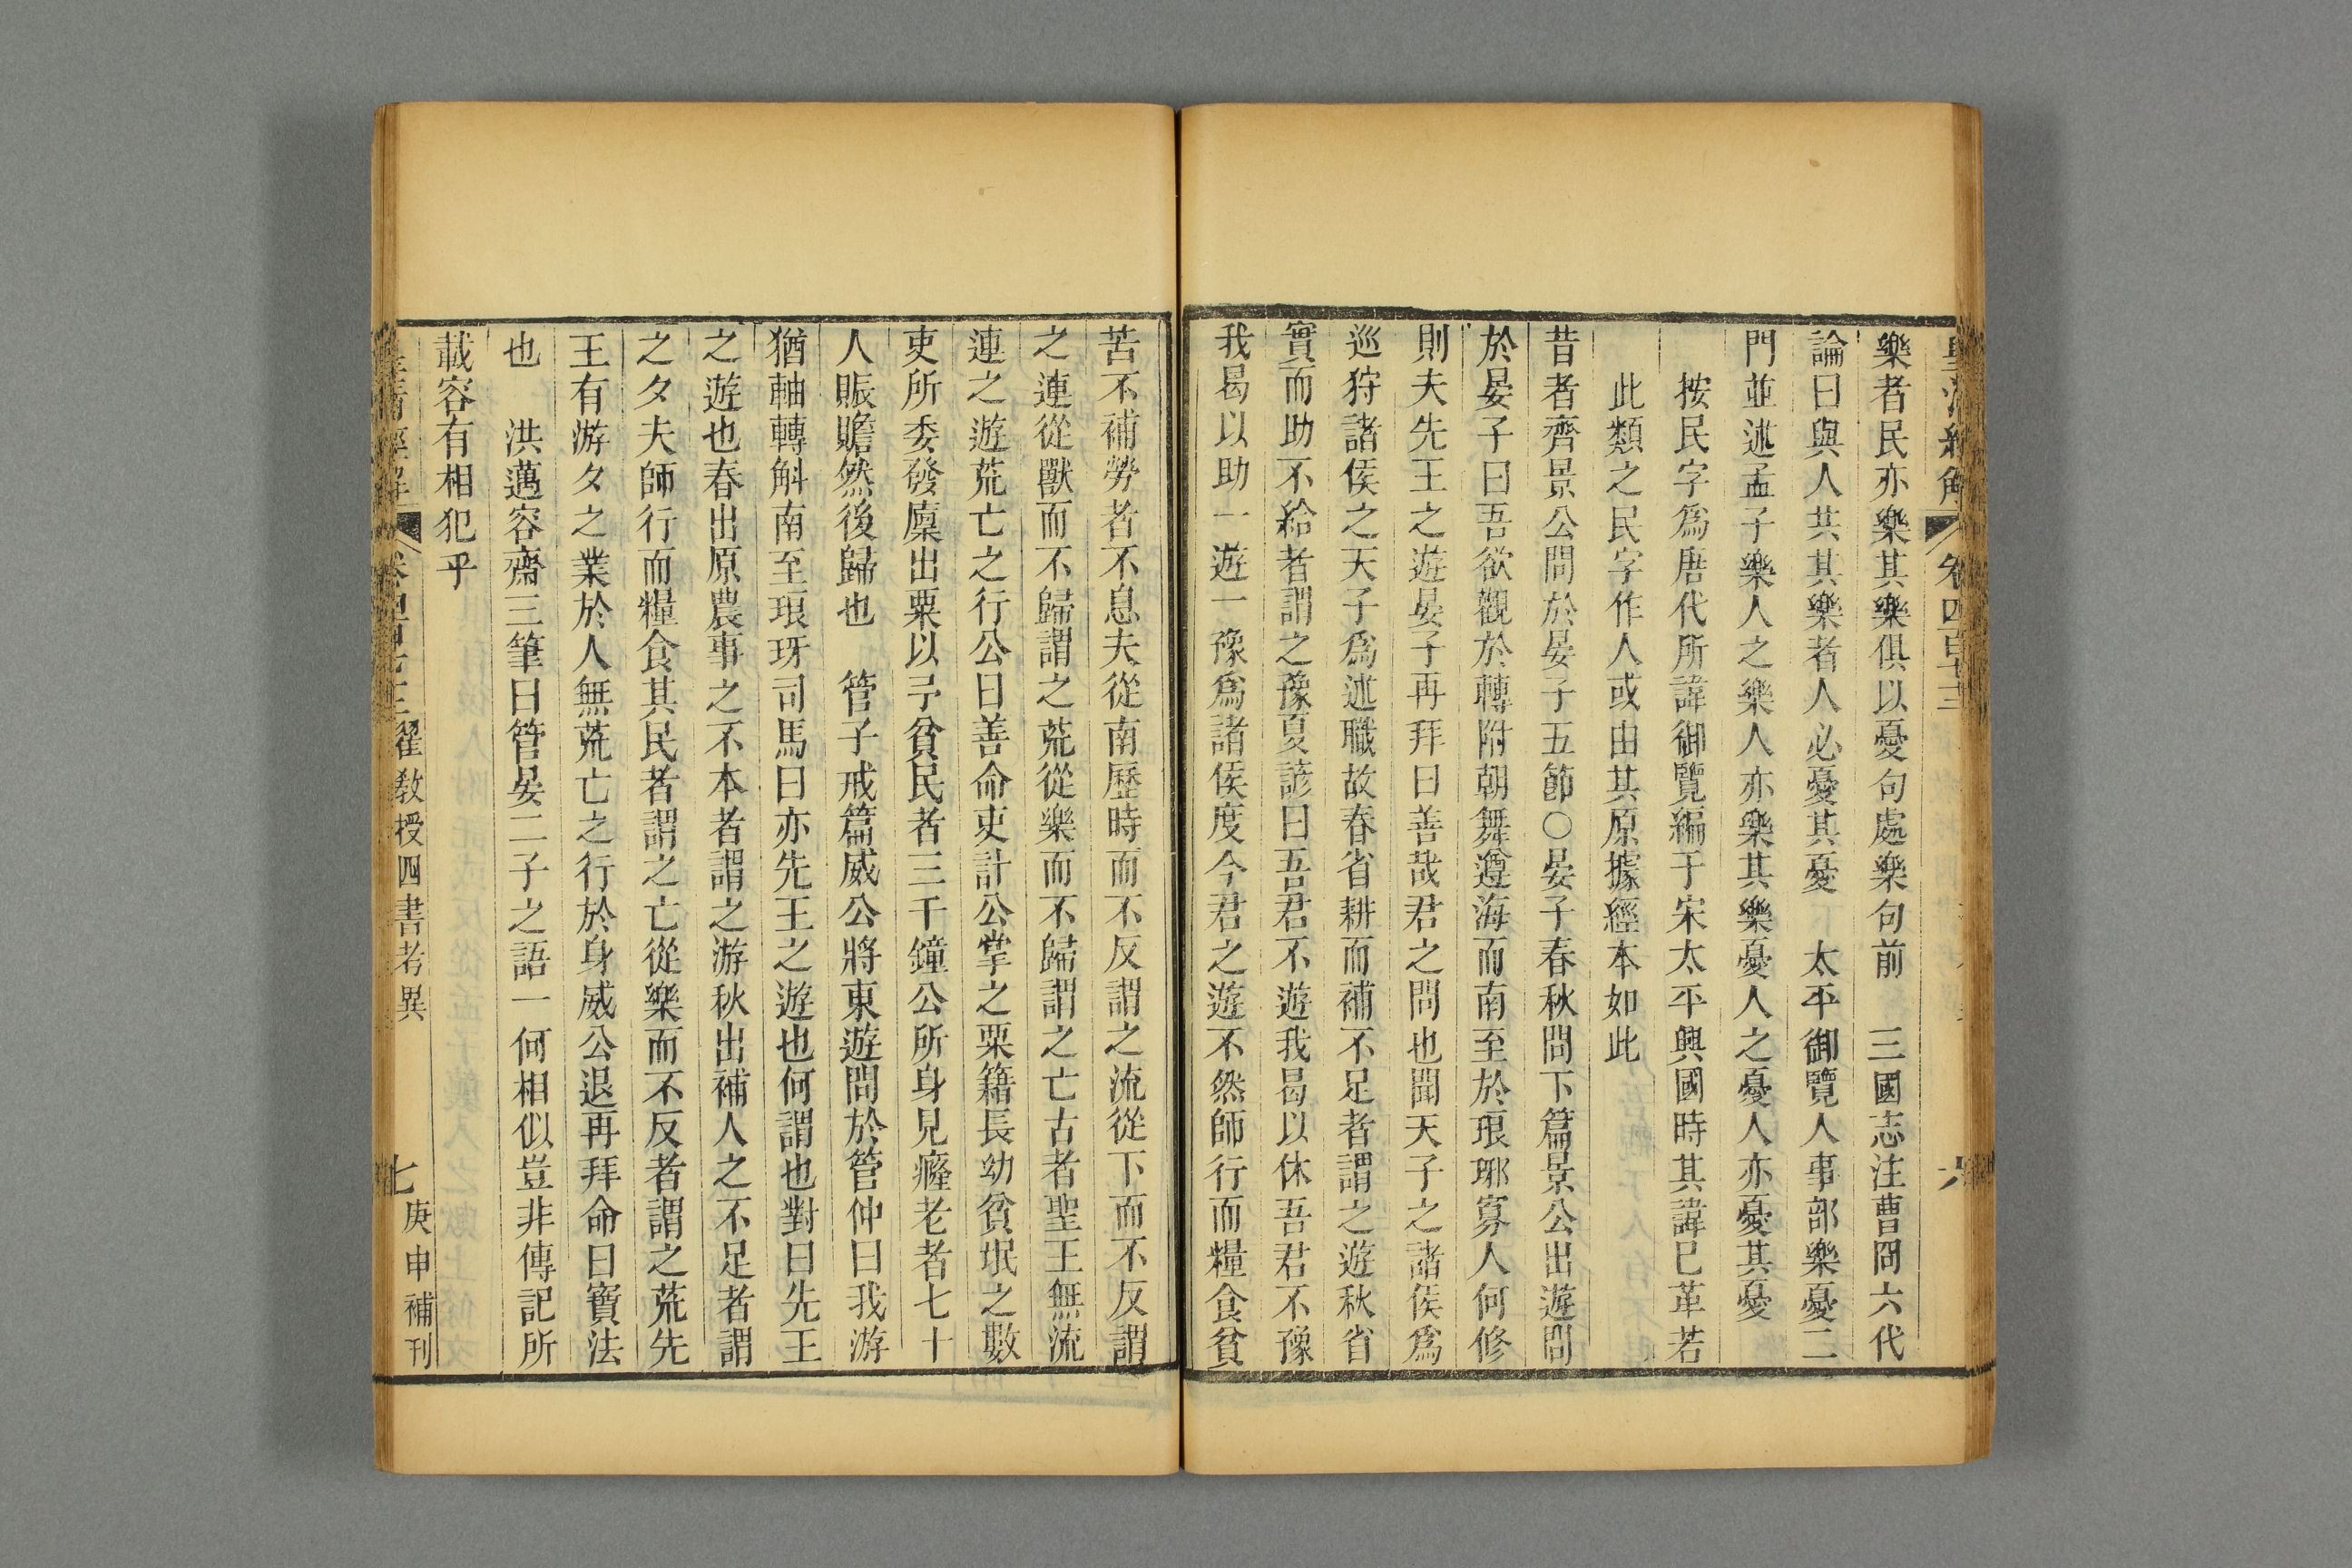 皇清經解 卷四百七十三 六
樂者民亦樂其樂俱以憂句處樂句前 三國志注曹冏六代
論曰與人共其樂者人必憂其憂 太平御覽人事部樂憂二
門並述孟子樂人之樂人亦樂其樂憂人之憂人亦憂其憂
按民字爲唐代所諱御覽編于宋太平興國時其諱已革若
此類之民字作人或由其原據經本如此
昔者齊景公問於晏子五節〇晏子春秋問下篇景公出遊問
於晏子曰吾欲觀於轉附朝舞遵海而南至於琅琊寡人何修
則夫先王之遊晏子再拜曰善哉君之問也聞天子之諸侯爲
巡狩諸侯之天子爲述職故春省耕而補不足者謂之遊秋省
實而助不給者謂之豫夏諺曰吾君不遊我曷以休吾君不豫
我曷以助一遊一豫爲諸侯度今君之遊不然師行而糧食貧
苦不補勞者不息夫從南歷時而不反謂之流從下而不反謂
之連從獸而不歸謂之荒從樂而不歸謂之亡古者聖王無流
連之遊荒亡之行公曰善命吏計公掌之粟籍長幼貧氓之數
吏所委發廩出粟以予貧民者三千鐘公所身見癃老者七十
人賑贍然後歸也 管子戒篇威公將東遊問於管仲曰我游
猶軸轉斛南至琅玡司馬曰亦先王之遊也何謂也對曰先王
之遊也春出原農事之不本者謂之游秋出補人之不足者謂
之夕夫師行而糧食其民者謂之亡從樂而不反者謂之荒先
王有游夕之業於人無荒亡之行於身威公退再拜命曰寶法
也 洪邁容齋三筆曰管晏二子之語一何相似豈非傳記所
載容有相犯乎
皇清經解 卷四百七十三翟敎授四書考異 七 庚申補刊